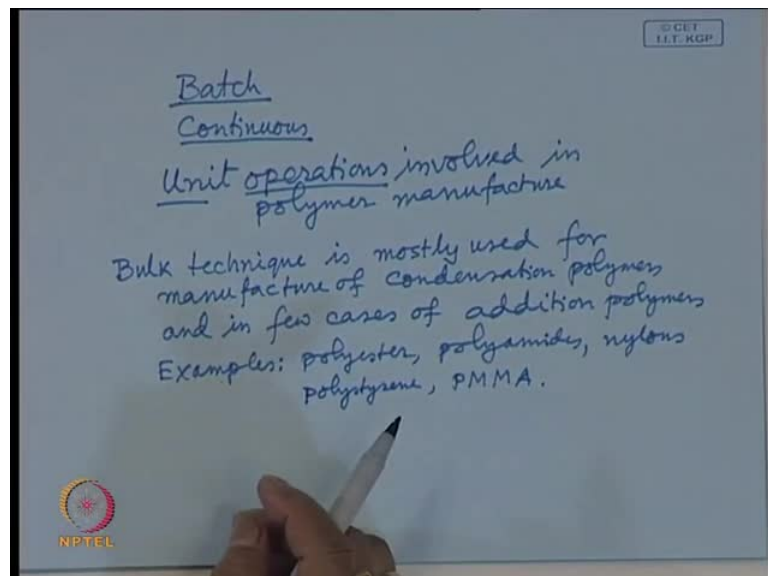 © CET
I.I.T. KGP
Batch
Continuous
Unit operations involved in
polymer manufacture
Bulk technique is mostly used for
manufacture of condensation polymers
and in few cases of addition polymers
Examples: polyester, polyamides, nylons
polystyrene, PMMA.
NPTEL